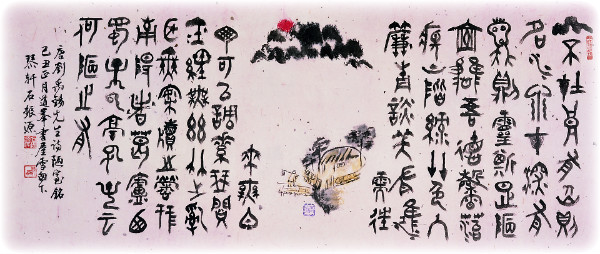 山不在高有仙則
名水不在深有
龍則靈斯是陋
室惟吾德馨苔
痕上階綠草色入
簾青談笑有鴻
儒往
來無白
丁可以調素琴閱
金經無絲竹之亂
耳無案牘之勞形
南陽諸葛廬西
蜀子雲亭孔子云
何陋之有
唐劉禹錫先生詩陋室銘
己丑正月道峯書屋
軒石